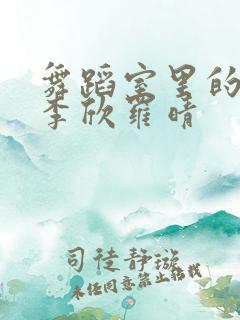 舞蹈室里的
李欣罗晴
司徒静璇
未经同意禁止转载